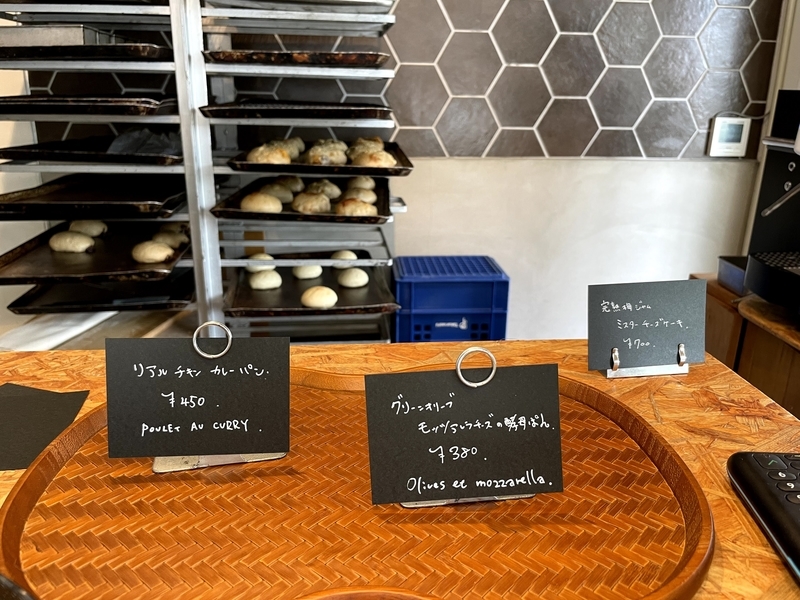 リアル チキン カレーパン.
¥450.
POULET AU CURRY.
グリーンオリーブ
モッツァレラチーズの酵母ぱん.
¥380.
Olives et mozzarella.
完熟梅ジャム
ミスターチーズケーキ.
¥700.